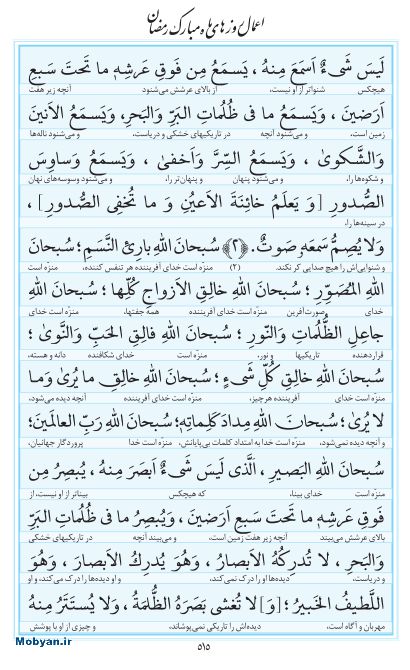 اعمال روزهای ماه مبارک رمضان
لَيسَ شَىءٌ اَسمَعَ مِنهُ ، يَسمَعُ مِن فَوقِ عَرشِهِ ما تَحتَ سَبعِ
هیچکس شنواتر از او نیست، از بالای عرشش می‌شنود آنچه زیر هفت
اَرَضينَ ، وَيَسمَعُ ما فى ظُلُماتِ البَرِّ وَالبَحرِ، وَيَسمَعُ الاَنينَ
زمین است، و می‌شنود آنچه در تاریکیهای خشکی و دریاست، و می‌شنود ناله‌ها
وَالشَّكوىٰ ، وَيَسمَعُ السِّرَّ وَاَخفىٰ ، وَيَسمَعُ وَساوِسَ
و شکوه‌ها را، و می‌شنود پنهان و پنهان‌تر را، و می‌شنود وسوسه‌های نهان
الصُّدورِ [وَ يَعلَمُ خائِنَةَ الاَعيُنِ وَ ما تُخفِى الصُّدورُ] ،
در سینه‌ها را،
وَلا يُصِمُّ سَمعَهُ صَوتٌ. ﴿٢﴾ سُبحانَ اللهِ بارِئِ النَّسَمِ؛ سُبحانَ
و شنوایی‌اش را هیچ صدایی کر نکند. (۲) منزّه است خدای آفریننده هر تنفس کننده، منزّه است
اللهِ المُصَوِّرِ؛ سُبحانَ اللهِ خالِقِ الاَزواجِ كُلِّها؛ سُبحانَ اللهِ
خدای صورت‌آفرین منزّه است خدای آفریننده همه جفتها، منزّه است خدای
جاعِلِ الظُّلُماتِ وَالنّورِ؛ سُبحانَ اللهِ فالِقِ الحَبِّ وَالنَّوىٰ؛
قراردهنده تاریکیها و نور، منزّه است خدای شکافنده دانه و هسته،
سُبحانَ اللهِ خالِقِ كُلِّ شَىءٍ؛ سُبحانَ اللهِ خالِقِ ما يُرىٰ وَما
منزّه است خدای آفریننده هرچیز، منزّه است خدای آفریننده آنچه دیده می‌شود،
لا يُرىٰ؛ سُبحانَ اللهِ مِدادَ كَلِماتِهِ؛ سُبحانَ اللهِ رَبِّ العالَمينَ؛
و آنچه دیده نمی‌شود، منزّه است خدا به امتداد کلمات بی‌پایانش، منزّه است خدا پروردگار جهانیان،
سُبحانَ اللهِ البَصيرِ ، الَّذى لَيسَ شَىءٌ اَبصَرَ مِنهُ ، يُبصِرُ مِن
منزّه است خدای بینا، که هیچکس بیناتر از او نیست، از
فَوقِ عَرشِهِ ما تَحتَ سَبعِ اَرَضينَ ، وَيُبصِرُ ما فى ظُلُماتِ البَرِّ
بالای عرشش می‌بیند آنچه زیر هفت زمین است، و می‌بیند آنچه در تاریکیهای خشکی
وَالبَحرِ ، لا تُدرِكُهُ الاَبصارُ ، وَهُوَ يُدرِكُ الاَبصارَ ، وَهُوَ
و دریاست، دیده‌ها او را درک نمی‌کند، و او دیده‌ها را درک می‌کند، و او
اللَّطيفُ الخَبيرُ؛ [وَ] لا تُغشى بَصَرَهُ الظُّلمَةُ ، وَلا يُستَتَرُ مِنهُ
مهربان و آگاه است، دیده‌اش را تاریکی نمی‌پوشاند، و چیزی از او با پوشش
۵۱۵
Mobyan.ir